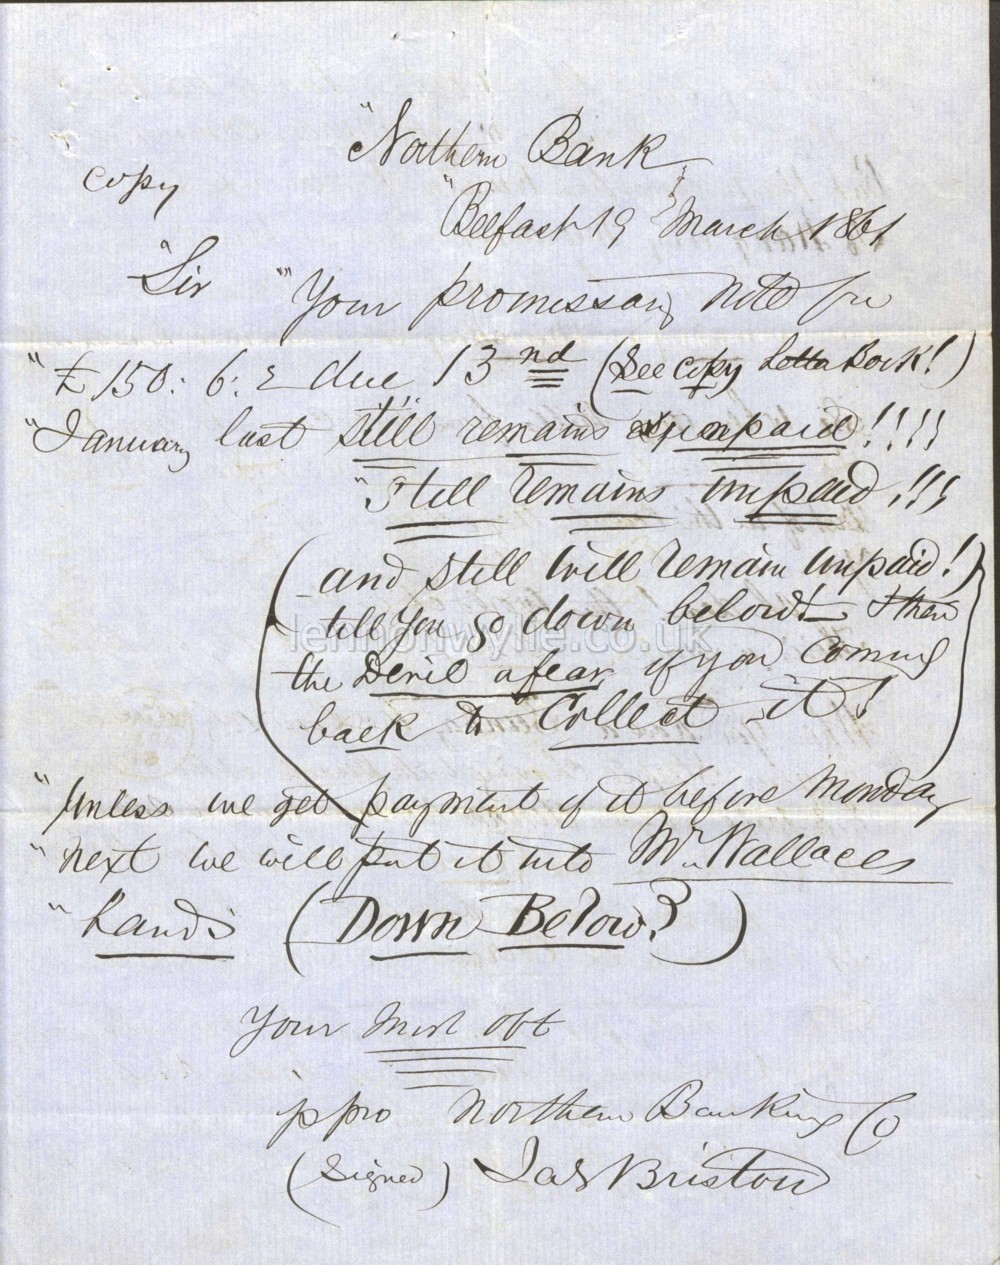 "Northern Bank
copy
"Belfast 19 March 1861
"Sir "" Your promissary note for
"£150: 6: 2 due 13 nd (See copy Letter Book!)
"January last still remains unpaid!!!!
"Still remains unpaid!!!
(and still will remain unpaid!
till you go down below! & then
lennonwylie.co.uk
the Devil a fear if you Coming
back to Collect it!)
"Unless we get payment of it before Monday
"next we will put it into Mr. Wallaces
"hands (Down Below?)
Your Most Obt
p pro Northern Banking Co
(Signed) Jas Bristow